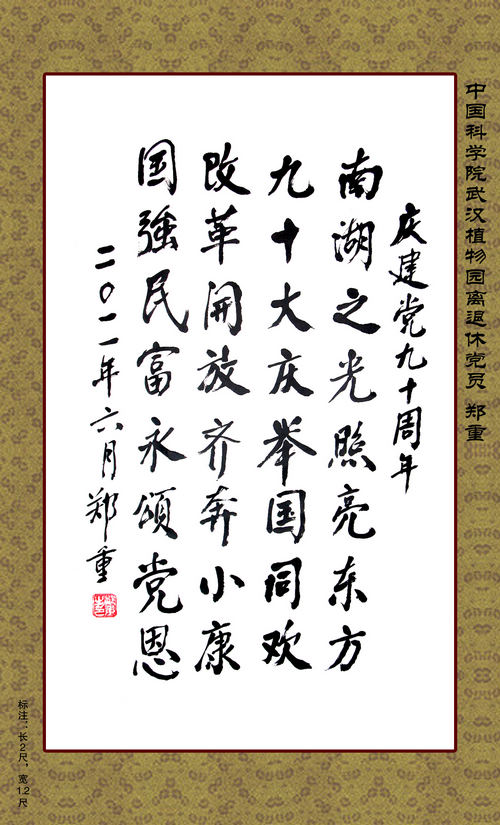 中国科学院武汉植物园离退休党员 郑重
庆建党九十周年
南湖之光照亮东方
九十大庆举国同欢
改革开放齐奔小康
国強民富永颂党恩
二〇一一年六月郑重
标注：长2尺，宽1.2尺